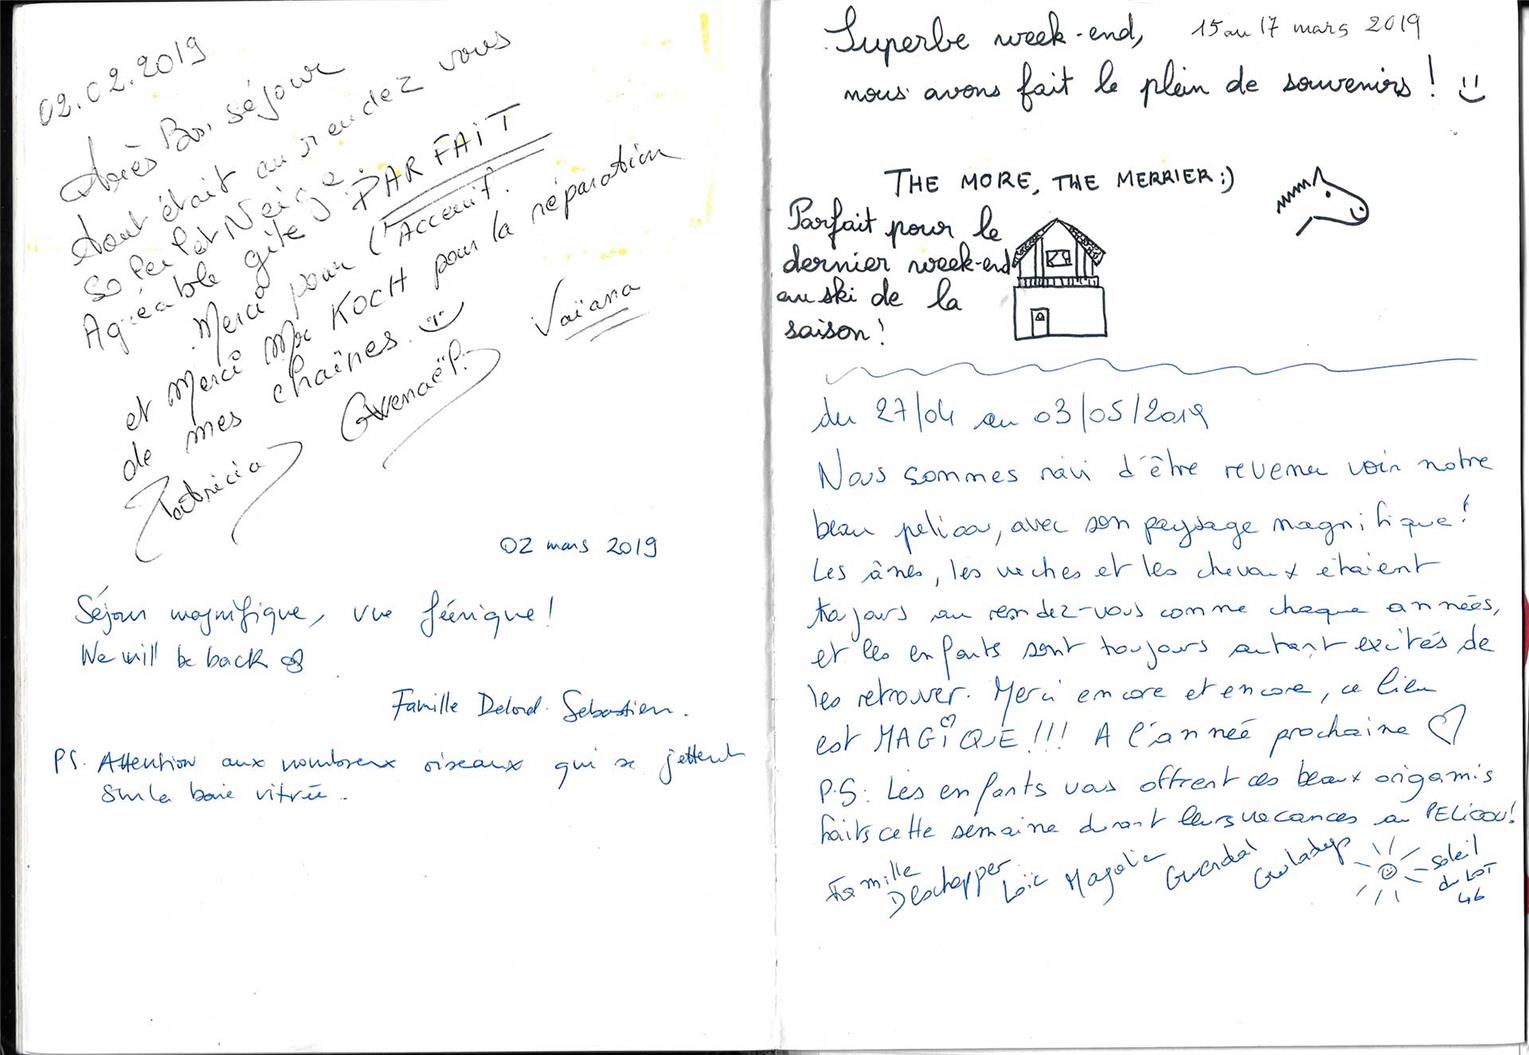 02.02.2019
Très Bon séjour
tout était au rendez vous
Soleil et Neige.
Agréable gîte, PARFAIT
Merci pour l'Accueil.
et Merci Mr KOCH pour la réparation
de mes chaînes.
Patricia Gwenaël P. Vaïana
02 mars 2019
Séjour magnifique, vue féerique!
We will be back
Famille Delord. Sebastien.
PS. Attention aux nombreux oiseaux qui se jettent
sur la baie vitrée.
Superbe week-end, 15 au 17 mars 2019
nous avons fait le plein de souvenirs !
THE MORE, THE MERRIER :)
Parfait pour le
dernier week-end
au ski de la
saison !
du 27/04 au 03/05/2019
Nous sommes ravi d'être revenu voir notre
beau pelicou, avec son paysage magnifique!
Les ânes, les vaches et les chevaux étaient
toujours au rendez-vous comme chaque années,
et les enfants sont toujours autant exités de
les retrouver. Merci encore et encore, ce lieu
est MAGIQUE!!! A l'année prochaine
P.S: Les enfants vous offrent ces beaux origamis
faits cette semaine durant leurs vacances au PELICOU!
Famille Deschepper Loïc Magalie Gwendal Gwladys soleil
du LOT
46